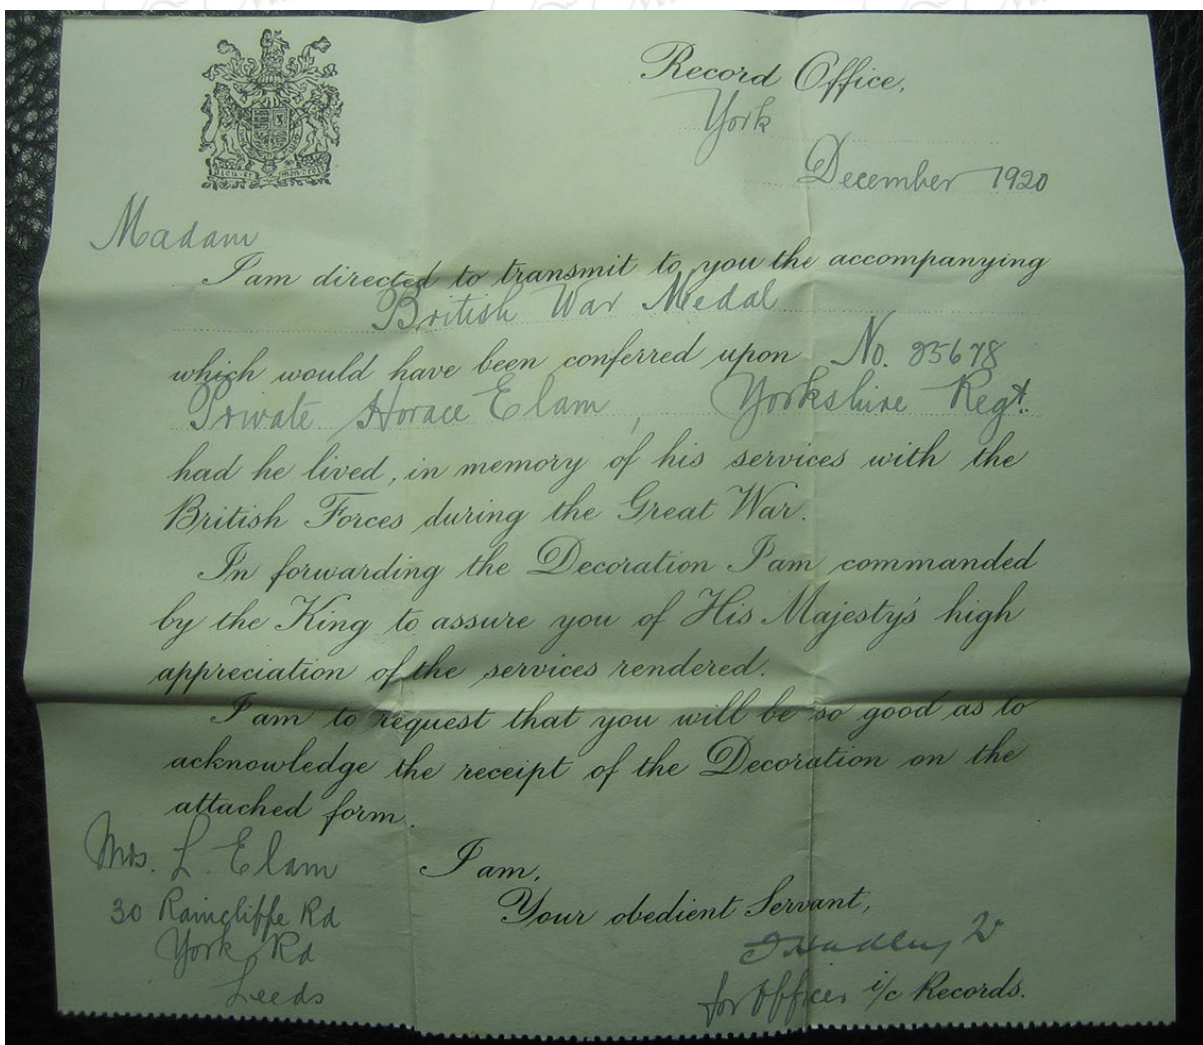 Record Office,
York
December 1920
Dieu et mon droit
Madam
I am directed to transmit to you the accompanying
British War Medal
which would have been conferred upon No. 35678
Private Horace Elam, Yorkshire Regt.
had he lived, in memory of his services with the
British Forces during the Great War.
In forwarding the Decoration I am commanded
by the King to assure you of His Majesty's high
appreciation of the services rendered.
I am to request that you will be so good as to
acknowledge the receipt of the Decoration on the
attached form.
Mrs. L. Elam
30 Raincliffe Rd
York Rd
Leeds
I am,
Your obedient Servant,
for Officer i/c Records.